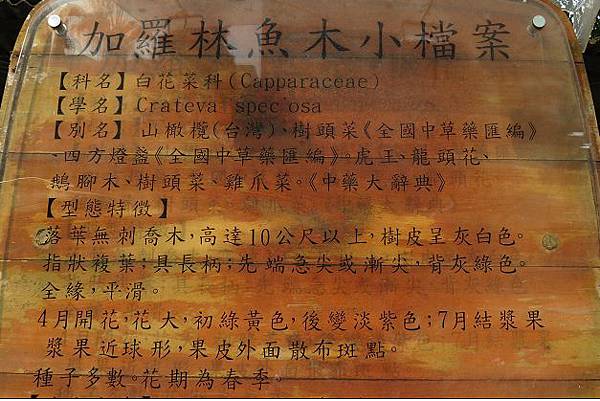 加羅林魚木小檔案
【科名】白花菜科(Capparaceae)
【學名】Crateva speciosa
【別名】 山橄欖(台灣)、樹頭菜《全國中草藥匯編》
、四方燈盞《全國中草藥匯編》。虎王、龍頭花、
鵝腳木、樹頭菜、雞爪菜。《中藥大辭典》
【型態特徵】
落葉無刺喬木，高達10公尺以上，樹皮呈灰白色。
指狀複葉；具長柄；先端急尖或漸尖，背灰綠色。
全緣，平滑。
4月開花，花大，初綠黃色，後變淡紫色；7月結漿果
漿果近球形，果皮外面散布斑點。
種子多數。花期為春季。